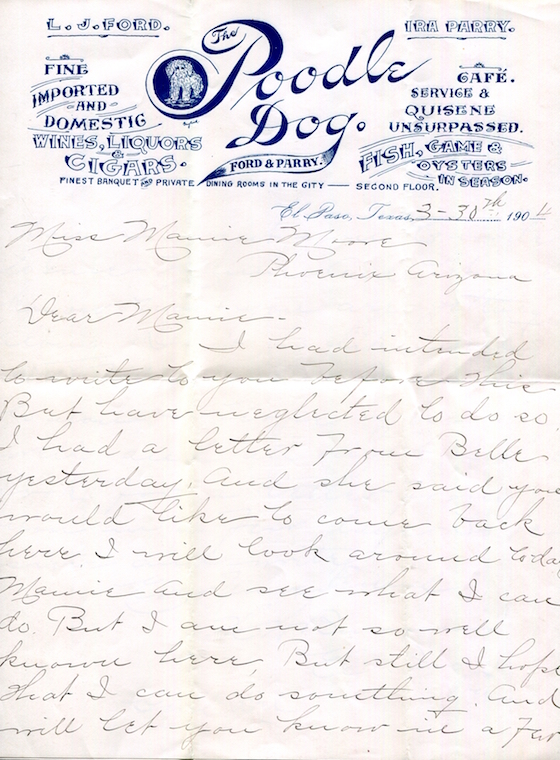 L. J. FORD.
IRA PARRY.
The
Poodle
Dog.
FORD & PARRY.
FINE
IMPORTED
-AND-
DOMESTIC
WINES, LIQUORS
&
CIGARS.
CAFÉ.
SERVICE &
QUISENE
UNSURPASSED.
FISH, GAME &
OYSTERS
IN SEASON.
FINEST BANQUET AND PRIVATE DINING ROOMS IN THE CITY — SECOND FLOOR.
El Paso, Texas, 3-30th 190
Miss Mamie Moore
Phoenix Arizona
Dear Mamie-
I had intended
to write to you before this
But have neglected to do so.
I had a letter from Belle
yesterday, And she said you
would like to come back
here. I will look around toda
Mamie and see what I can
do. But I am not so well
known here, But still I hope
that I can do something. And
will let you know in a Few